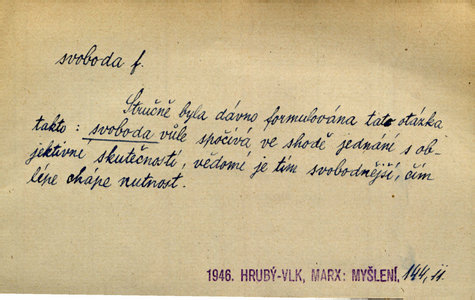 svoboda f.
Stručně byla dávno formulována tato otázka
takto: svoboda vůle spočívá ve shodě jednání s ob-
jektivní skutečností, vědomí je tím svobodnější, čím
lépe chápe nutnost.
1946. HRUBÝ-VLK, MARX: MYŠLENÍ, 144, ii.